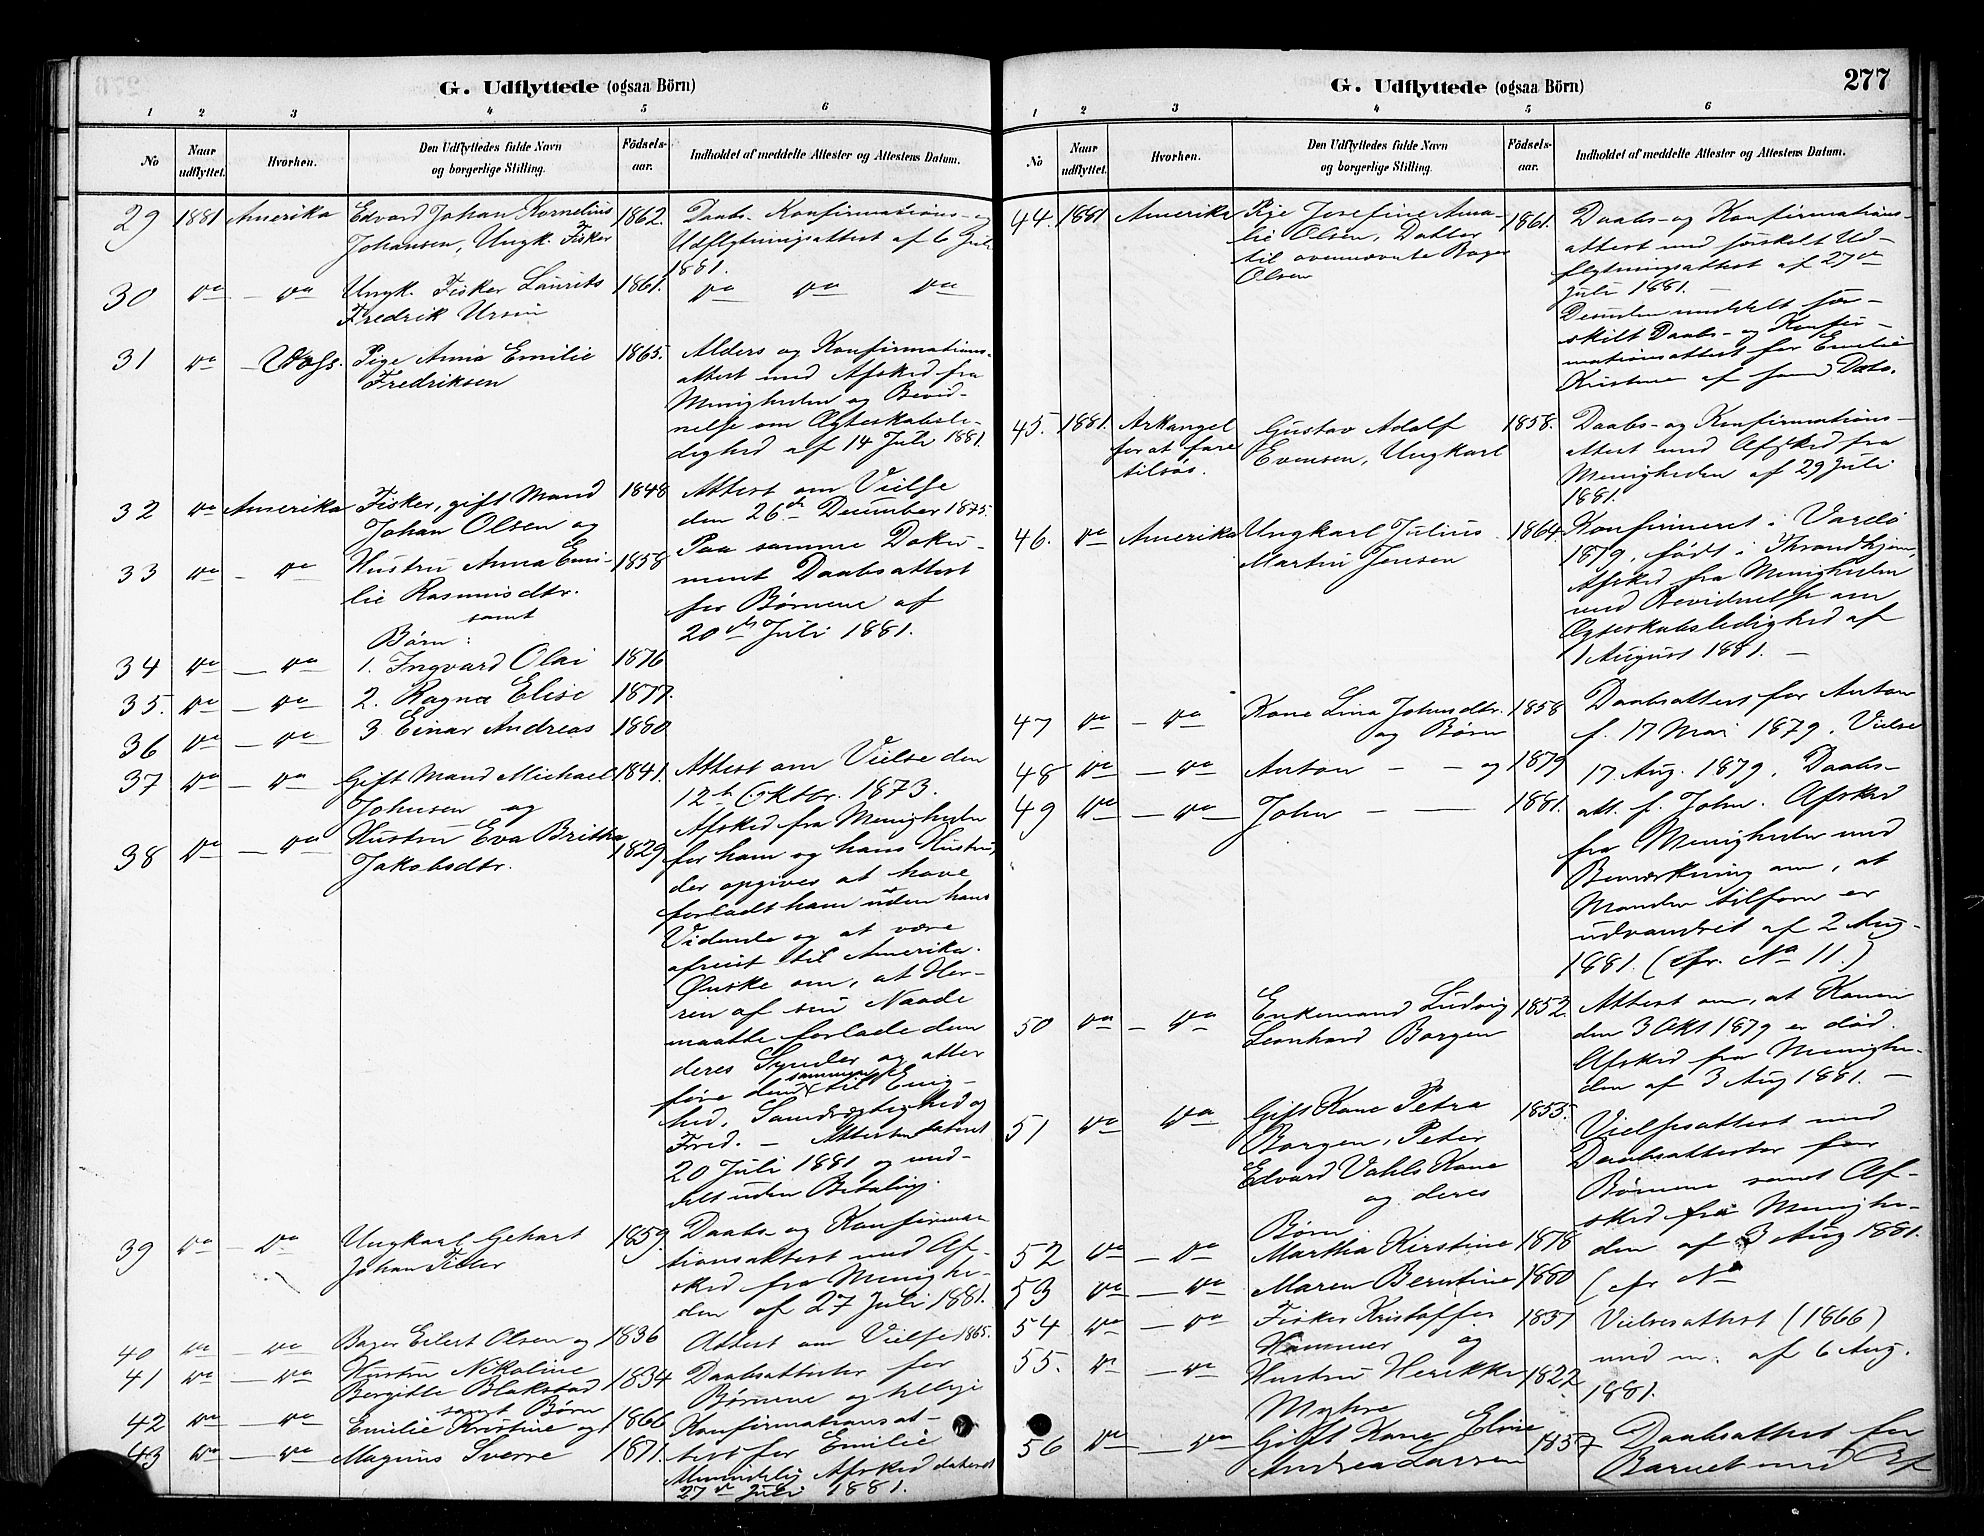 G. Udflyttede (ogsaa Börn)
1 2 3 4 5 6
No Naar udflyttet. Hvorhen. Den Udflyttedes fulde Navn og borgerlige Stilling. Födselsaar. Indholdet af meddelte Attester og Attestens Datum.
29 1881 Amerika Edvard Johan Kornelius 1862. Daabs- Konfirmations- og
Johansen, Ungk. Fisker Udflytningsattest af 6 Juli
1881.
30 do — do Ungk. Fisker Laurits 1861. do do do
Fredrik Ursin
31 do — Vads. Pige Anna Emilie 1865. Alders og Konfirmations-
Fredriksen attest med Afsked fra
Menigheden og Bevid-
nelse om Ægteskabsle-
dighed af 14 Juli 1881.
32 do Amerika Fisker, gift Mand 1848 Attest om Vielse
Johan Olsen og den 26de December 1875.
33 do — do Hustru Anna Emi- 1858 Paa samme Doku-
lie Rasmusdtr. ment Daabsattest
samt for Børnene af
Børn: 20de Juli 1881.
34 do — do 1. Ingvard Olai 1876
35. do — do 2. Ragna Elise 1877.
36 do — do 3 Einar Andreas 1880
37 do — do Gift Mand Michael 1841. Attest om Vielse den
Johnsen og 12te Oktbr. 1873.
38 do — do Hustru Eva Britha 1829 Afsked fra Menigheden
Jakobsdtr. for ham og hans Hustru,
der opgives at have
forladt ham uden hans
Vidende og at være
afreist til Amerika.
Ønske om, at Her-
ren af sin Naade
maatte forlade dem
deres Synder og atter
føre dem sammen til Enig-
hed, Samdrægtighed og
Fred. — Attesten dateret
20 Juli 1881 og med-
delt uden Betaling.
39 do — do Ungkarl Gehart 1859. Daabs- og Konfirma-
Johan Fisker tionsattest med Af-
sked fra Menighe-
den af 27 Juli 1881.
40 do — do Bager Eilert Olsen og 1836 Attest om Vielse 1865.
41 do — do Hustru Nikoline 1834 Daabsattester for
Bergitte Blakstad Børnene og tillige
samt Børn
42 do — do Emilie Kristine og 1866 Konfirmationsat-
43 do — do Magnus Sverre 1871. test for Emilie
Menighe Afsked dateret
27de Juli 1881.
G. Udflyttede (ogsaa Börn) 277
1 2 3 4 5 6
No Naar udflyttet. Hvorhen. Den Udflyttedes fulde Navn og borgerlige Stilling. Födselsaar. Indholdet af meddelte Attester og Attestens Datum.
44. 1881 Amerika Pige Josefine Ama- 1861. Daabs- og Konfirmations-
lie Olsen, Datter attest med særskilt Ud-
til ovennævnte Bager flytningsattest af 27de
Olsen Juli 1881. —
Desuden meddelt sær-
skilt Daabs- og Konfir-
mationsattest for Emilie
Kristine af samme Dato.
45. 1881. Arkangel Gustav Adolf 1858. Daabs- og Konfirmations-
for at fare Evensen, Ungkarl attest med Afsked fra
tilsøs. Menigheden af 29 Juli
1881.
46. do Amerika Ungkarl Julius 1864 Konfirmeret i Vardø
Martin Jensen 1879, født i Throndhjem,
Afsked fra Menigheden
med Bevidnelse om
Ægteskabsledighed af
1 August 1881. —
47 do — do Kone Lina Johnsdtr. 1858 Daabsattest for Anton
og Børn f. 17 Mai 1879, Vielse
48 do — do Anton — — og 1879 17 Aug. 1879. Daabs-
49 do — do John — — 1881. att. f. John. Afsked
fra Menigheden med
Bemærkning om, at
Manden tilforn er
udvandret af 2 Aug.
1881. (cfr. No 11.)
50 do — do Enkemand Ludvig 1852. Attest om, at Konen
Leonhard Borgen den 3 Okt 1879 er død.
Afsked fra Menighe-
den af 3 Aug 1881. —
51 do do Gift Kone Petra 1855. Vielsesattest med
Borgen, Peter Daabsattester for
Edvard Vahls Kone Børnene samt Af-
og deres sked fra Menighe-
Børn
52 do — do Martha Kirstine 1878 den af 3 Aug 1881.
53 do — do Maren Berntine 1880 (cfr No
54 do — do Fisker Kristoffer 1837 Vielsesattest (1866)
Hammer og med m. af 6 Aug.
55. do — do Hustru Henrikke 1827 1881.
Myhre
56 do — do Gift Kone Eline 1857 Daabsattest for
Andrea Larsen Barnet med Af